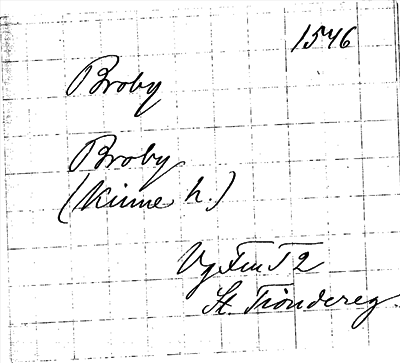 1546
Broby
Broby
(Kinne h.)
Vg Fem T 2
St. Tiondereg.